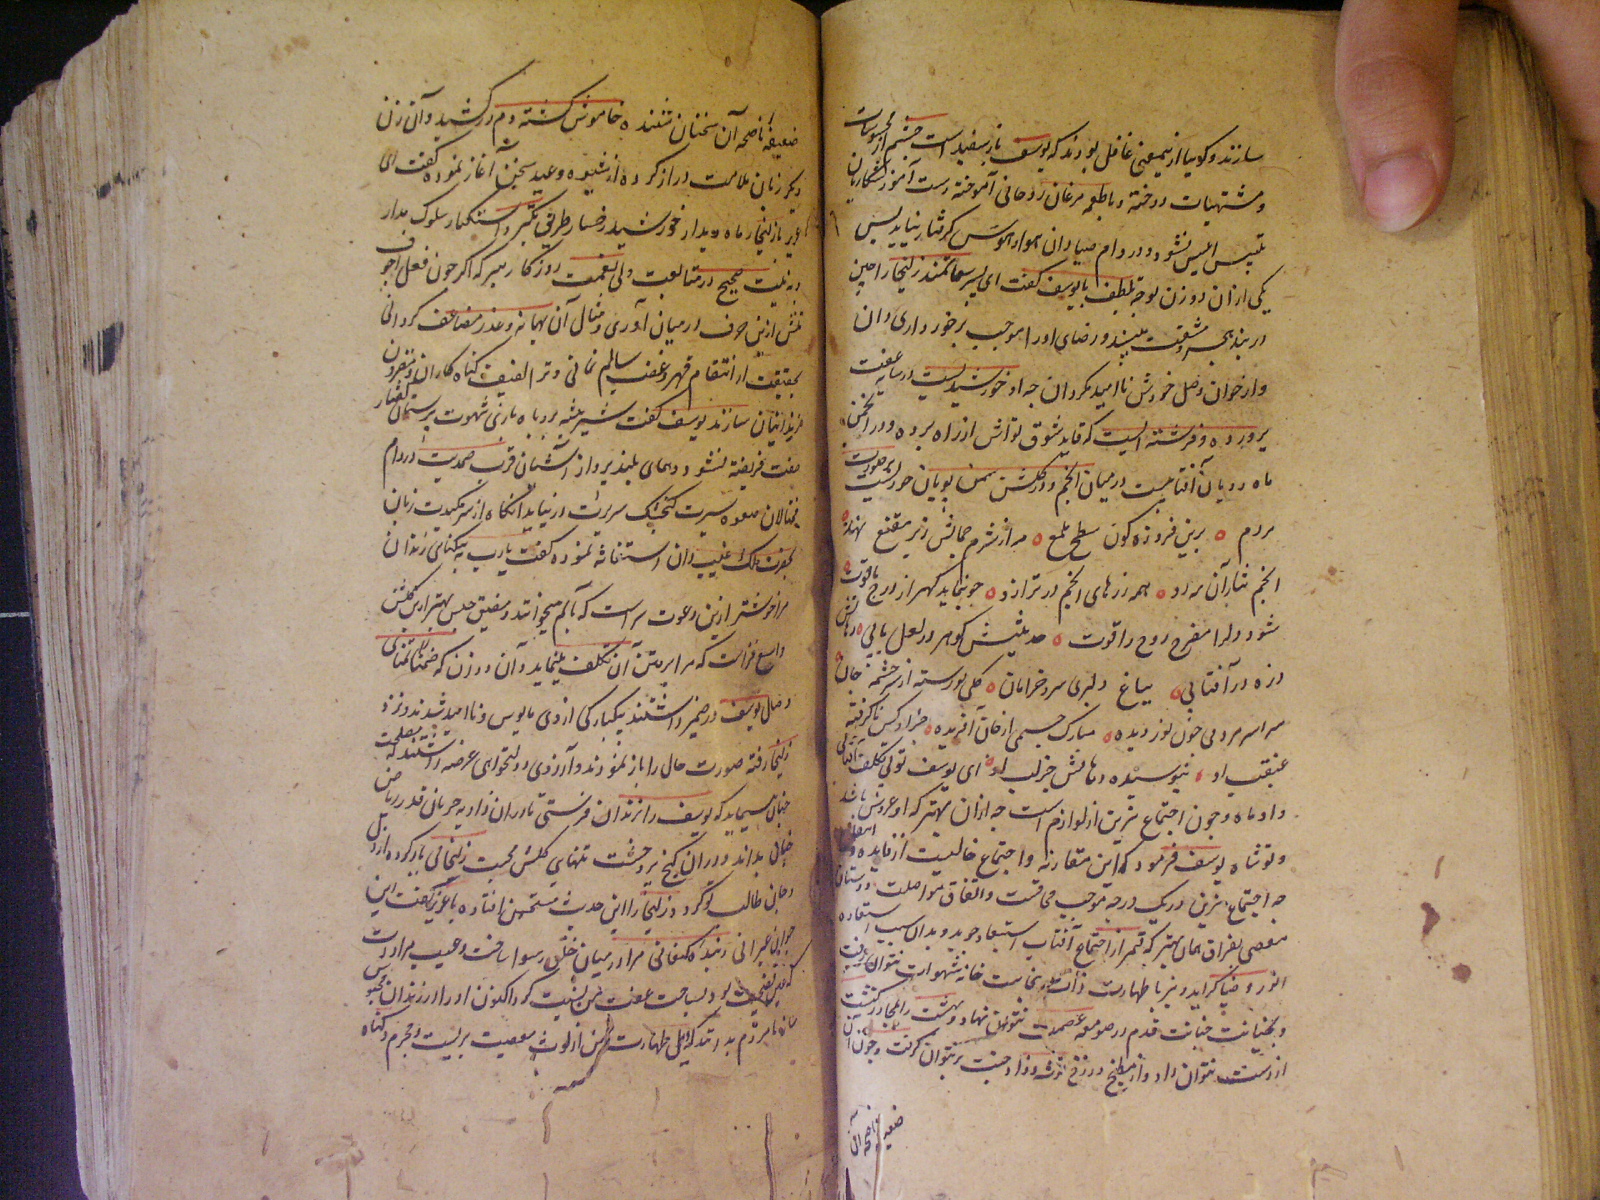 سازند و کویا ازینمعنی غافل بودند که یوسف باز سفید است چشم از محبوبات
و مشتهیات دوخته و با طعمه مرغان روحانی آموخته دست آموز شکاریان
تلبیس ابلیس نشود و در دام صیادان هوا و هوس کرفتار نیاید پس
یکی ازان دو زن بوجه تلطف با یوسف کفت ای پسر سعادتمند زلیخا را چنین
در بند هجر و مشقت مپسند و رضای او را موجب برخورداری دان
و از خوان وصل خودش ناامید مکردان چه او خورشیدیست در سایه عفت
پرورده و فرشته ایست که قاید شوق تواش از راه برده و در انجمن
ماه رویان آفتابیست در میان انجم و در کلشن سمن بویان حوریست بر صورت
مردم برین فیروزه کون سطح ملمع مه از شرم جمالش زیر مقنع نهد
انجم نثار آن مه رو همه زرهای انجم در ترازو چو بنماید کهر از درج یاقوت
شود دلرا مفرح روح را قوت حدیثش کوهر در لعل یابی دهانش
ذره در آفتابی بباغ دلبری سرو خرامان کلی نورسته از سرچشمه جان
سراسر مردمی چون نور دیده مبارک جسمی از جان آفریده جز او کس ناکرفته
غبغب او نبوسیده دهانش جز لب او ای یوسف تو بی تکلف آفتابی
و او ماه و چون اجتماع نیرین از لوازم است چه ازان بهتر که او عروس باشد
و تو شاه یوسف فرمود که این مقارنه و اجتماع خالیست از فایده و انتفاع
چه اجتماع نیرین در یک درجه موجب محاقست و اتفاق مواصلت دوستان
مفضی بفراق همان بهتر که قمر از اجتماع آفتاب استبعاد جوید و بدان سبب استفاده
انور و ضیا کراید و نیز با طهارت ذات بنجاست خانه شهوات نتوان رفت
و بخیانت جنابت قدم در صومعه عصمت نتوان نهاد و بهشت را بجا در کنشت
از دست نتوان داد و از مطبخ دوزخ توشه و زاد جنت بر نتوان کرفت و چون آن
ضعیفه ناصحه آن
ضعیفه ناصحه آن سخنان شنید خاموش کشته دم در کشید و آن زن
دیکر زبان ملامت دراز کرده از شیوه وعید سخن آغاز نمود و کفت ای
عزیز با زلیخا ماه دیدار خورشید رخسار طریق تکبر و استکبار سلوک مدار
و به نیت صحیح در متابعت ولی نعمت روزکار ببر که اکر چون فعل اجوف
نقش ازین حرف در میان آوری و مثال آن بهانه و عذر مضاعف کردانی
بحقیقت از انتقام قهر و غضب سالم نمانی و ترا لفیف کناه کاران و مقرون
مریدانهان سازند یوسف کفت شیر بیشه بروباه بازی شهوت پرستان کفتار
صفت فریفته نشود و همای بلند پرواز آشیان قرب صمدیت در دام
محتالان صعوه سیرت کنجشک سریرت در نیاید انکاه از سر مکیدت زنان
بحضرت ملک غیب دان استغاثه نموده کفت یارب به تنکنای زندان
مرا خوشتر ازین دعوت سراست که بآنم میخوانند و مضیق حبس بهتر ازین کلشن
واسع فزاست که مرا برفتن آن تکلف مینماید و آن دو زن که ضمنا تمنای
وصال یوسف در ضمیر داشتند یکبارکی از وی مایوس و ناامید شدند و نزد
زلیخا رفته صورت حال را باز نمودند و از روی دولتخواهی عرضه داشتند که مصلحت
چنان مینماید که یوسف را بزندان فرستی تا دران زاویه حرمان قدر ریاض
جنانی بداند و دران کنج پر وحشت تنهایی کلشن محبت زلیخائی یاد کرده از دل
و جان طالب تو کردد و زلیخا را این حدیث مستحسن افتاده با عزیز کفت این
جوان عبرانی و بنده کنعانی مرا در میان خلق رسوا ساخت و عیب مرا درین
که عین فضیحت بود بساحت عفت من نسبت کرد اکنون او را در زندان محبوس
ساز تا مردم بدانند که ذیل طهارت من از لوث معصیت بریست و مجرم و کناه